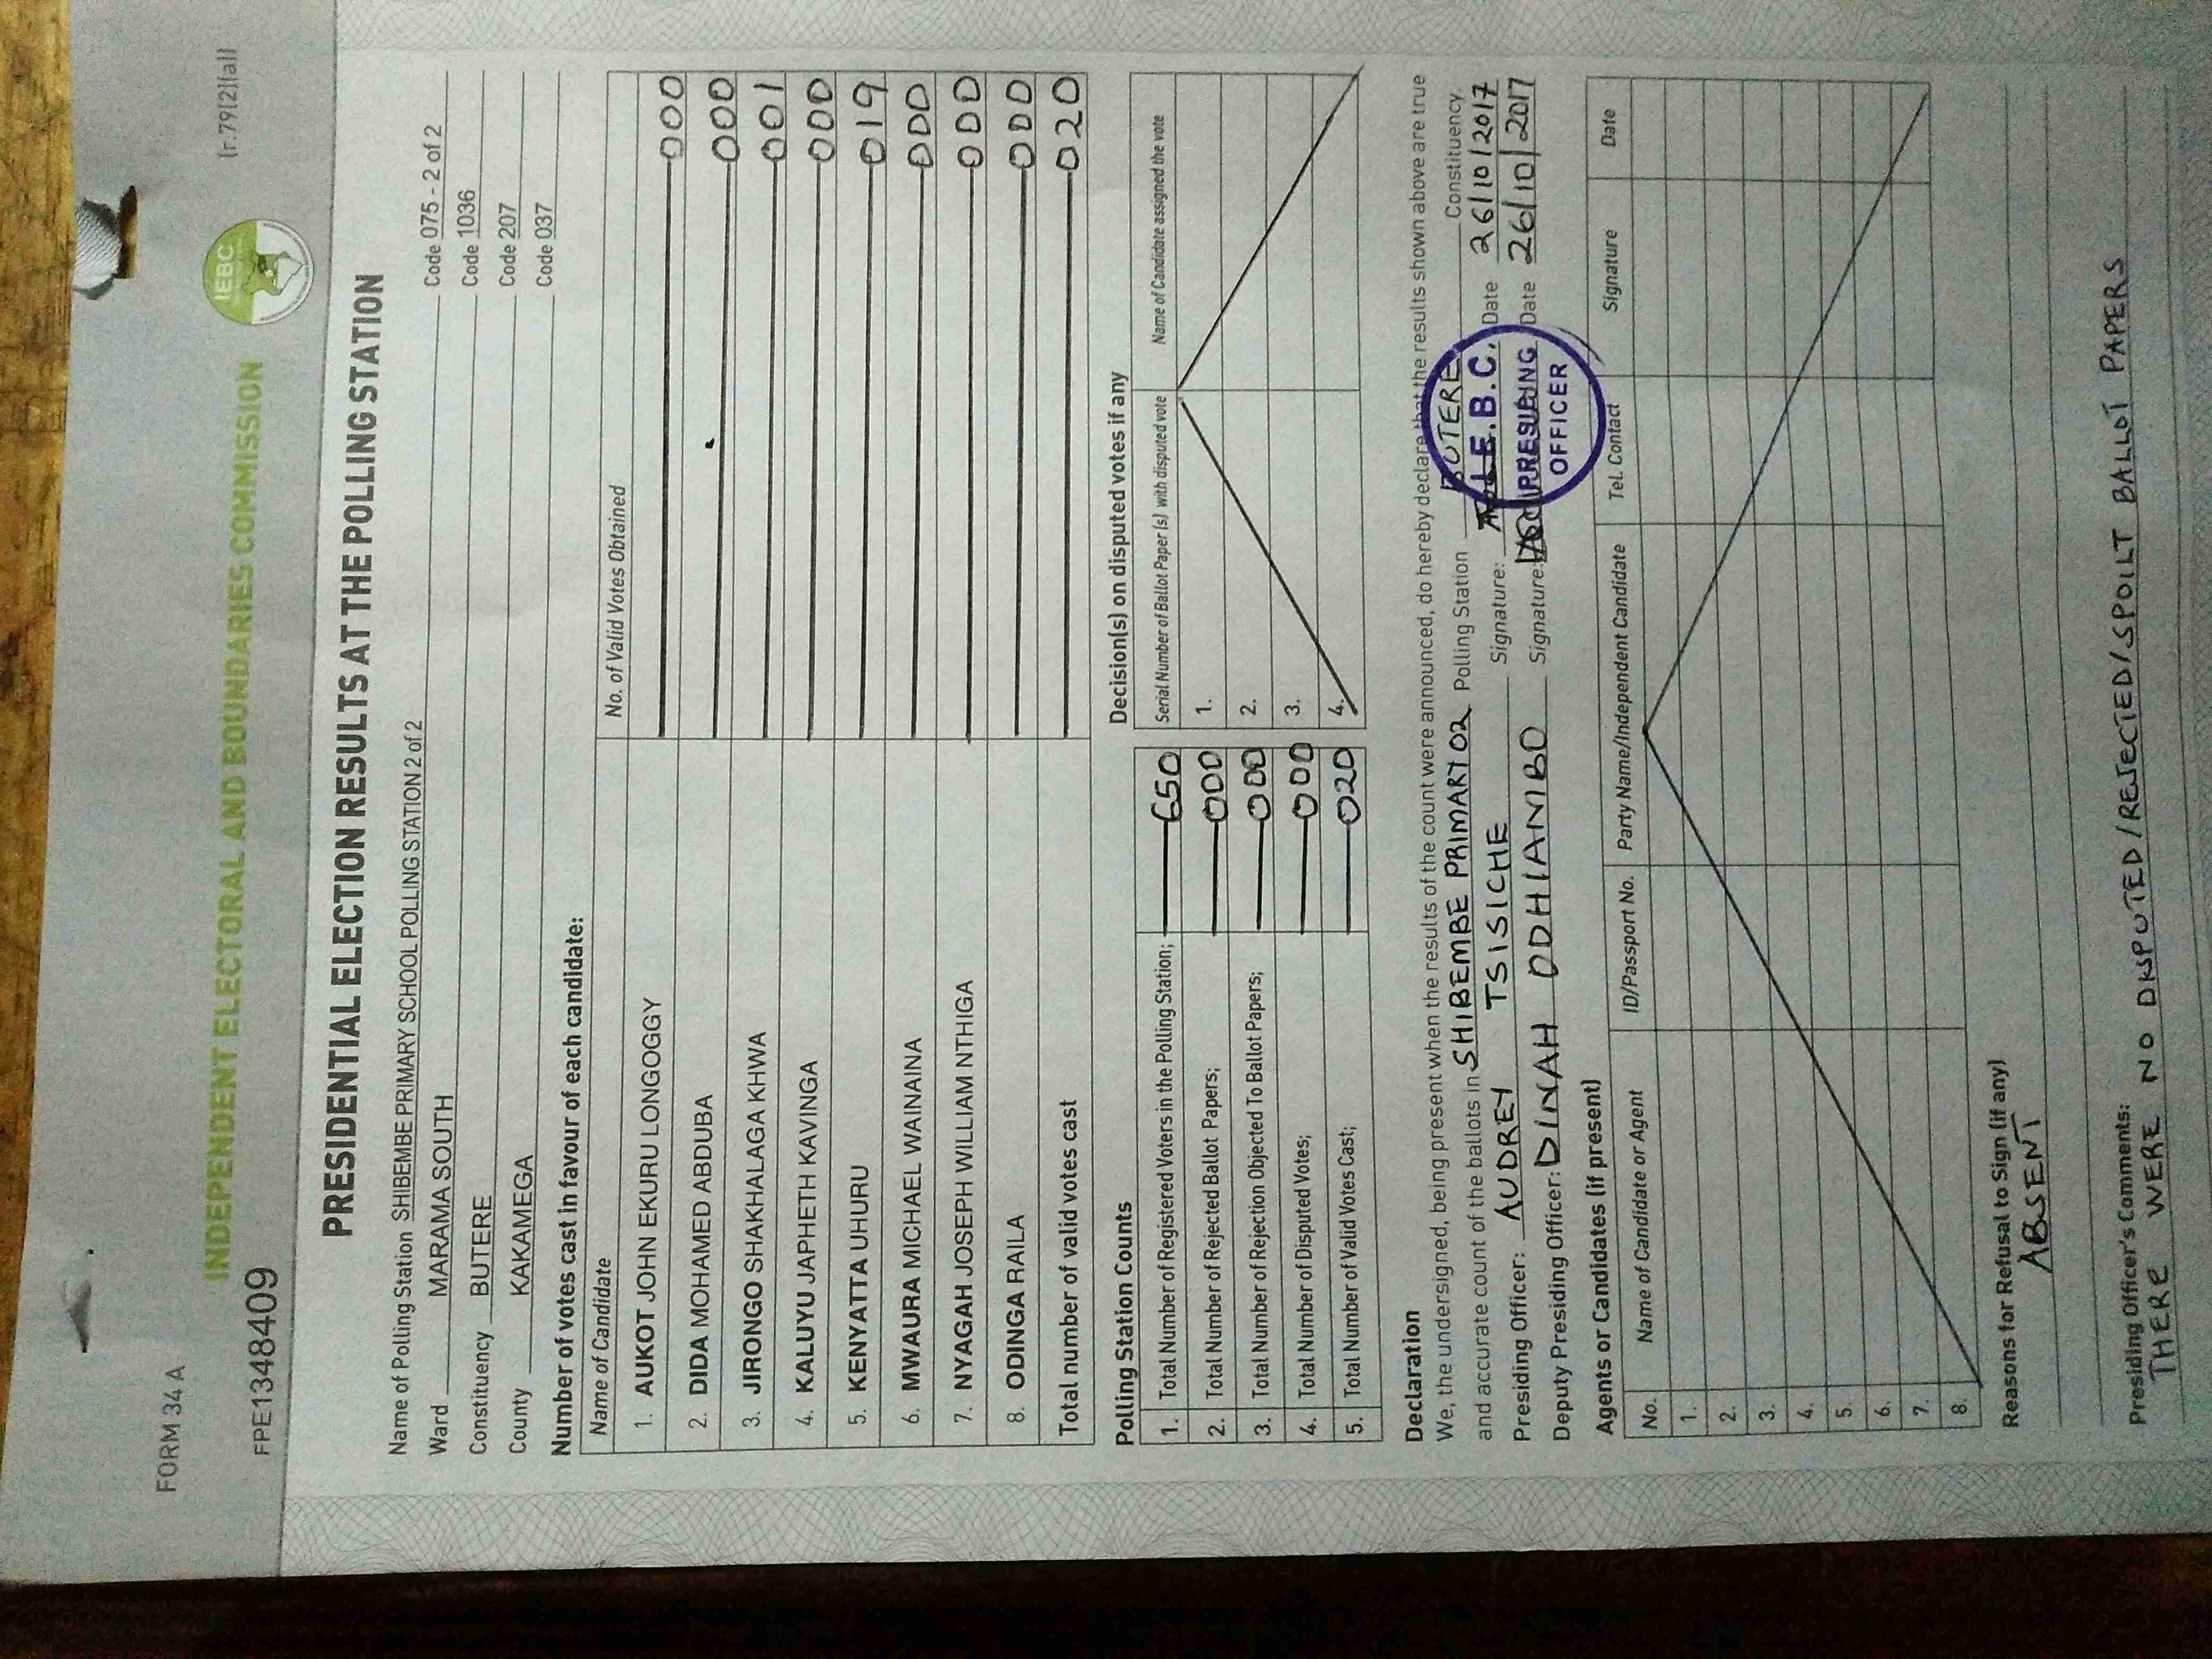 FORM 34 A
[r.79(2)(a)]
IEBC
INDEPENDENT ELECTORAL AND BOUNDARIES COMMISSION
FPE1348409
PRESIDENTIAL ELECTION RESULTS AT THE POLLING STATION
Name of Polling Station SHIBEMBE PRIMARY SCHOOL POLLING STATION 2 of 2 Code 075 - 2 of 2
Ward MARAMA SOUTH Code 1036
Constituency BUTERE Code 207
County KAKAMEGA Code 037
Number of votes cast in favour of each candidate:
Name of Candidate No. of Valid Votes Obtained
1. AUKOT JOHN EKURU LONGOGGY 000
2. DIDA MOHAMED ABDUBA 000
3. JIRONGO SHAKHALAGA KHWA 001
4. KALUYU JAPHETH KAVINGA 000
5. KENYATTA UHURU 019
6. MWAURA MICHAEL WAINAINA 000
7. NYAGAH JOSEPH WILLIAM NTHIGA 000
8. ODINGA RAILA 000
Total number of valid votes cast 020
Polling Station Counts
1. Total Number of Registered Voters in the Polling Station; 650
2. Total Number of Rejected Ballot Papers; 000
3. Total Number of Rejection Objected To Ballot Papers; 000
4. Total Number of Disputed Votes; 000
5. Total Number of Valid Votes Cast; 020
Decision(s) on disputed votes if any
Serial Number of Ballot Paper (s) with disputed vote Name of Candidate assigned the vote
1.
2.
3.
4.
Declaration
We, the undersigned, being present when the results of the count were announced, do hereby declare that the results shown above are true
and accurate count of the ballots in SHIBEMBE PRIMARY 02 Polling Station BUTERE Constituency
Presiding Officer: AUDREY TSISICHE Signature: Date 26/10/2017
Deputy Presiding Officer: DINAH ODHIAMBO Signature: Date 26/10/2017
I.E.B.C.
PRESIDING
OFFICER
Agents or Candidates (if present)
No. Name of Candidate or Agent ID/Passport No. Party Name/Independent Candidate Tel. Contact Signature Date
1.
2.
3.
4.
5.
6.
7.
8.
Reasons for Refusal to Sign (if any)
ABSENT
Presiding Officer's Comments:
THERE WERE NO DISPUTED/REJECTED/SPOILT BALLOT PAPERS